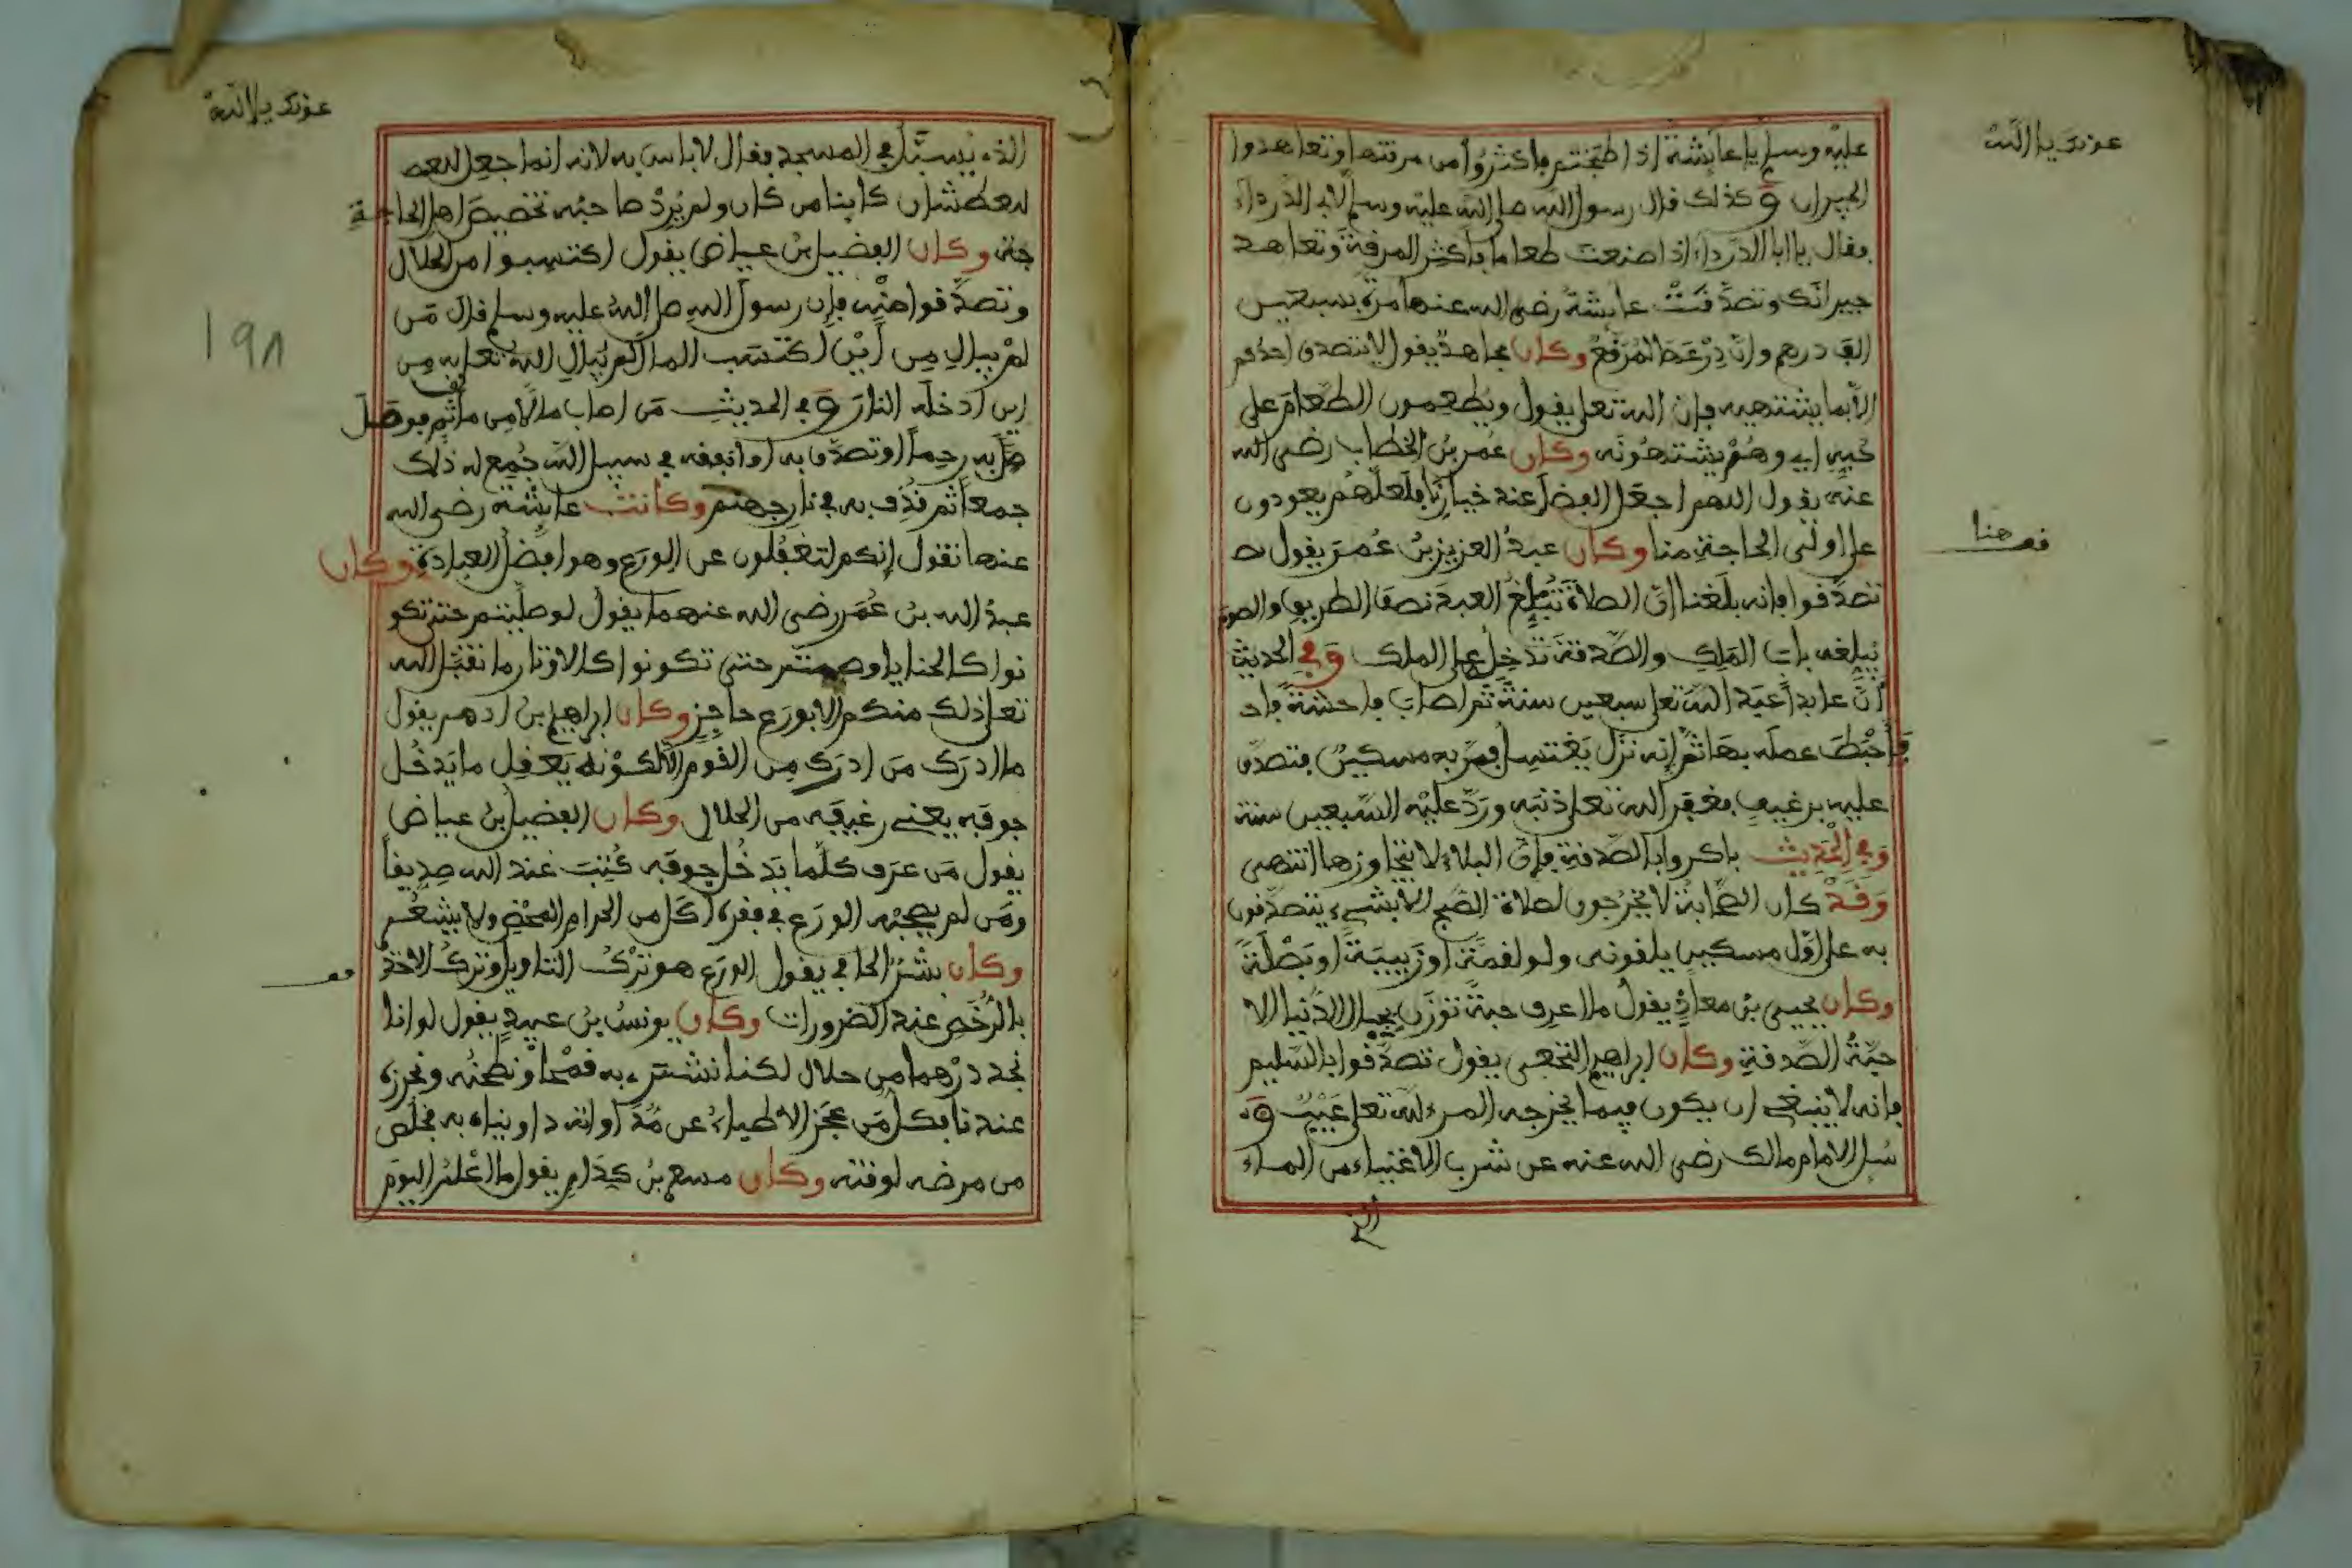 عونك يا الله
عليه وسلم يا عايشة اذا طبختم فاكثروا من مرقتها وتعاهدوا
الجيران وكذلك قال رسول الله صلى الله عليه وسلم لابي الدرداء
فقال يا ابا الدرداء اذا صنعت طعاما فاكثر المرقة وتعاهد
جيرانك وتصدقت عايشة رضي الله عنها مرة بسبعين
الف درهم وان درعها لمرقع وكان مجاهد يقول لا يتصدق احدكم
الا بما يشتهيه فان الله تعلى يقول ويطعمون الطعام على
حبه اي وهم يشتهونه وكان عمر بن الخطاب رضي الله
عنه يقول اللهم اجعل الفضل عند خيارنا فلعلهم يعودون
على اولى الحاجة منا وكان عبد العزيز بن عمر يقول
قف هنا
تصدقوا فانه بلغنا ان الصلاة تبلغ العبد نصف الطريق والصوم
يبلغه باب الملك والصدقة تدخل على الملك وفي الحديث
أن عابدا عبد الله تعلى سبعين سنة ثم اصاب فاحشة فاح
فأحبط عمله بها ثم إنه نزل يغتسل فمر به مسكين فتصدق
عليه برغيف فغفر الله تعلى ذنبه ورد عليه السبعين سنة
وفي الحديث باكروا بالصدقة فإن البلاء لا يتجاوزها انتهى
وقد كان الصحابة لا يخرجون لصلاة الصبح الا بشيء يتصدقون
به على اول مسكين يلقونه ولو لقمة او زبيبة او بصلة
وكان يحيى بن معاذ يقول ما اعرف حبة توزن بجبال الدنيا الا
حبة الصدقة وكان ابراهيم النخعي يقول تصدقوا بالسليم
فانه لا ينبغي ان يكون فيما يخرجه المرء لله تعلى عيب و
سئل الامام مالك رضي الله عنه عن شرب الاغنياء من الماء
الذي
عونك يا الله
الذي يسبل في المسجد فقال لا باس به لانه انما جعل للعط
للعطشان كاينا من كان ولم يرد صاحبه تخصيص اهل الحاجة
جة وكان الفضيل بن عياض يقول اكتسبوا من الحلال
وتصدقوا منه فإن رسول الله صلى الله عليه وسلم قال من
١٩٨
لم يبال من أين اكتسب المال لم يبال الله تعلى به من
اين ادخله النار وفي الحديث من اصاب مالا من مأثم فوصل
صل به رحما او تصدق به او انفقه في سبيل الله جمع له ذلك
جمعا ثم قذف به في نار جهنم وكانت عايشة رضي الله
عنها تقول إنكم لتغفلون عن الورع وهو افضل العبادة وكان
عبد الله بن عمر رضي الله عنهما يقول لو صليتم حتى تكو
نوا كالحنايا وصمتم حتى تكونوا كالاوتار ما تقبل الله
تعلى ذلك منكم الا بورع حاجز وكان ابراهيم بن ادهم يقول
ما ادرك من ادرك من القوم الا لكونه يعقل ما يدخل
جوفه يعني رغيفه من الحلال وكان الفضيل بن عياض
يقول من عرف كلما يدخل جوفه كتب عند الله صديقا
ومن لم يصحبه الورع في فقره أكل من الحرام المحض ولا يشعر
وكان بشر الحافي يقول الورع هو ترك التاويل وترك الاخذ
قف
بالرخص عند الضرورات وكان يونس بن عبيد يقول لو انا
نجد درهما من حلال لكنا نشتري به قمحا ونطحنه ونحرزه
عندنا فكل من عجز الاطباء عن مداواته داويناه به فخلص
من مرضه لوقته وكان مسعر بن كدام يقول ما اعلم اليوم